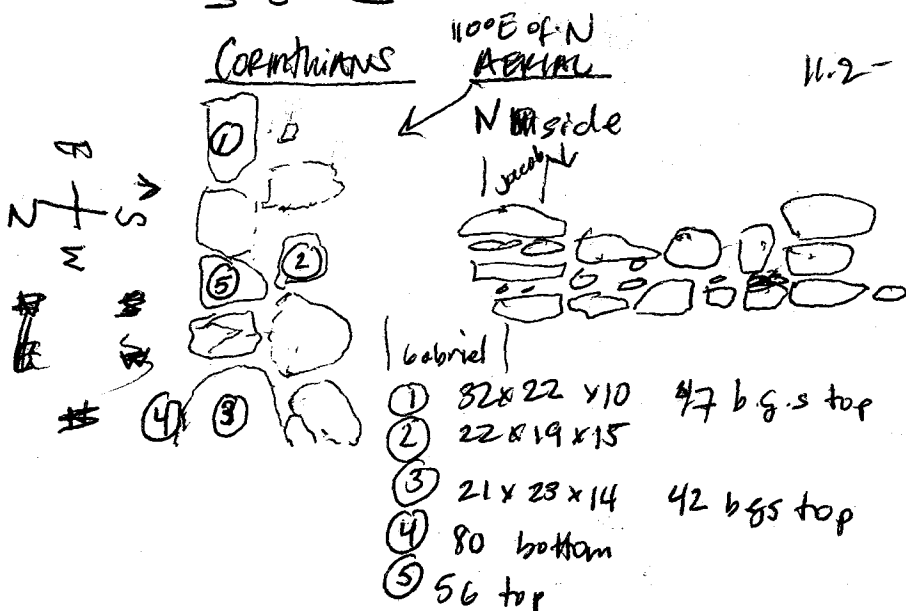 CORINTHIANS
110°E of N
AERIAL
11.2-
N side
Jacob
N
E
S
W
1
2
5
4
3
Gabriel
① 32x22 x10 47 b.g.s top
② 22x19x15
③ 21x23x14 42 bgs top
④ 80 bottom
⑤ 56 top